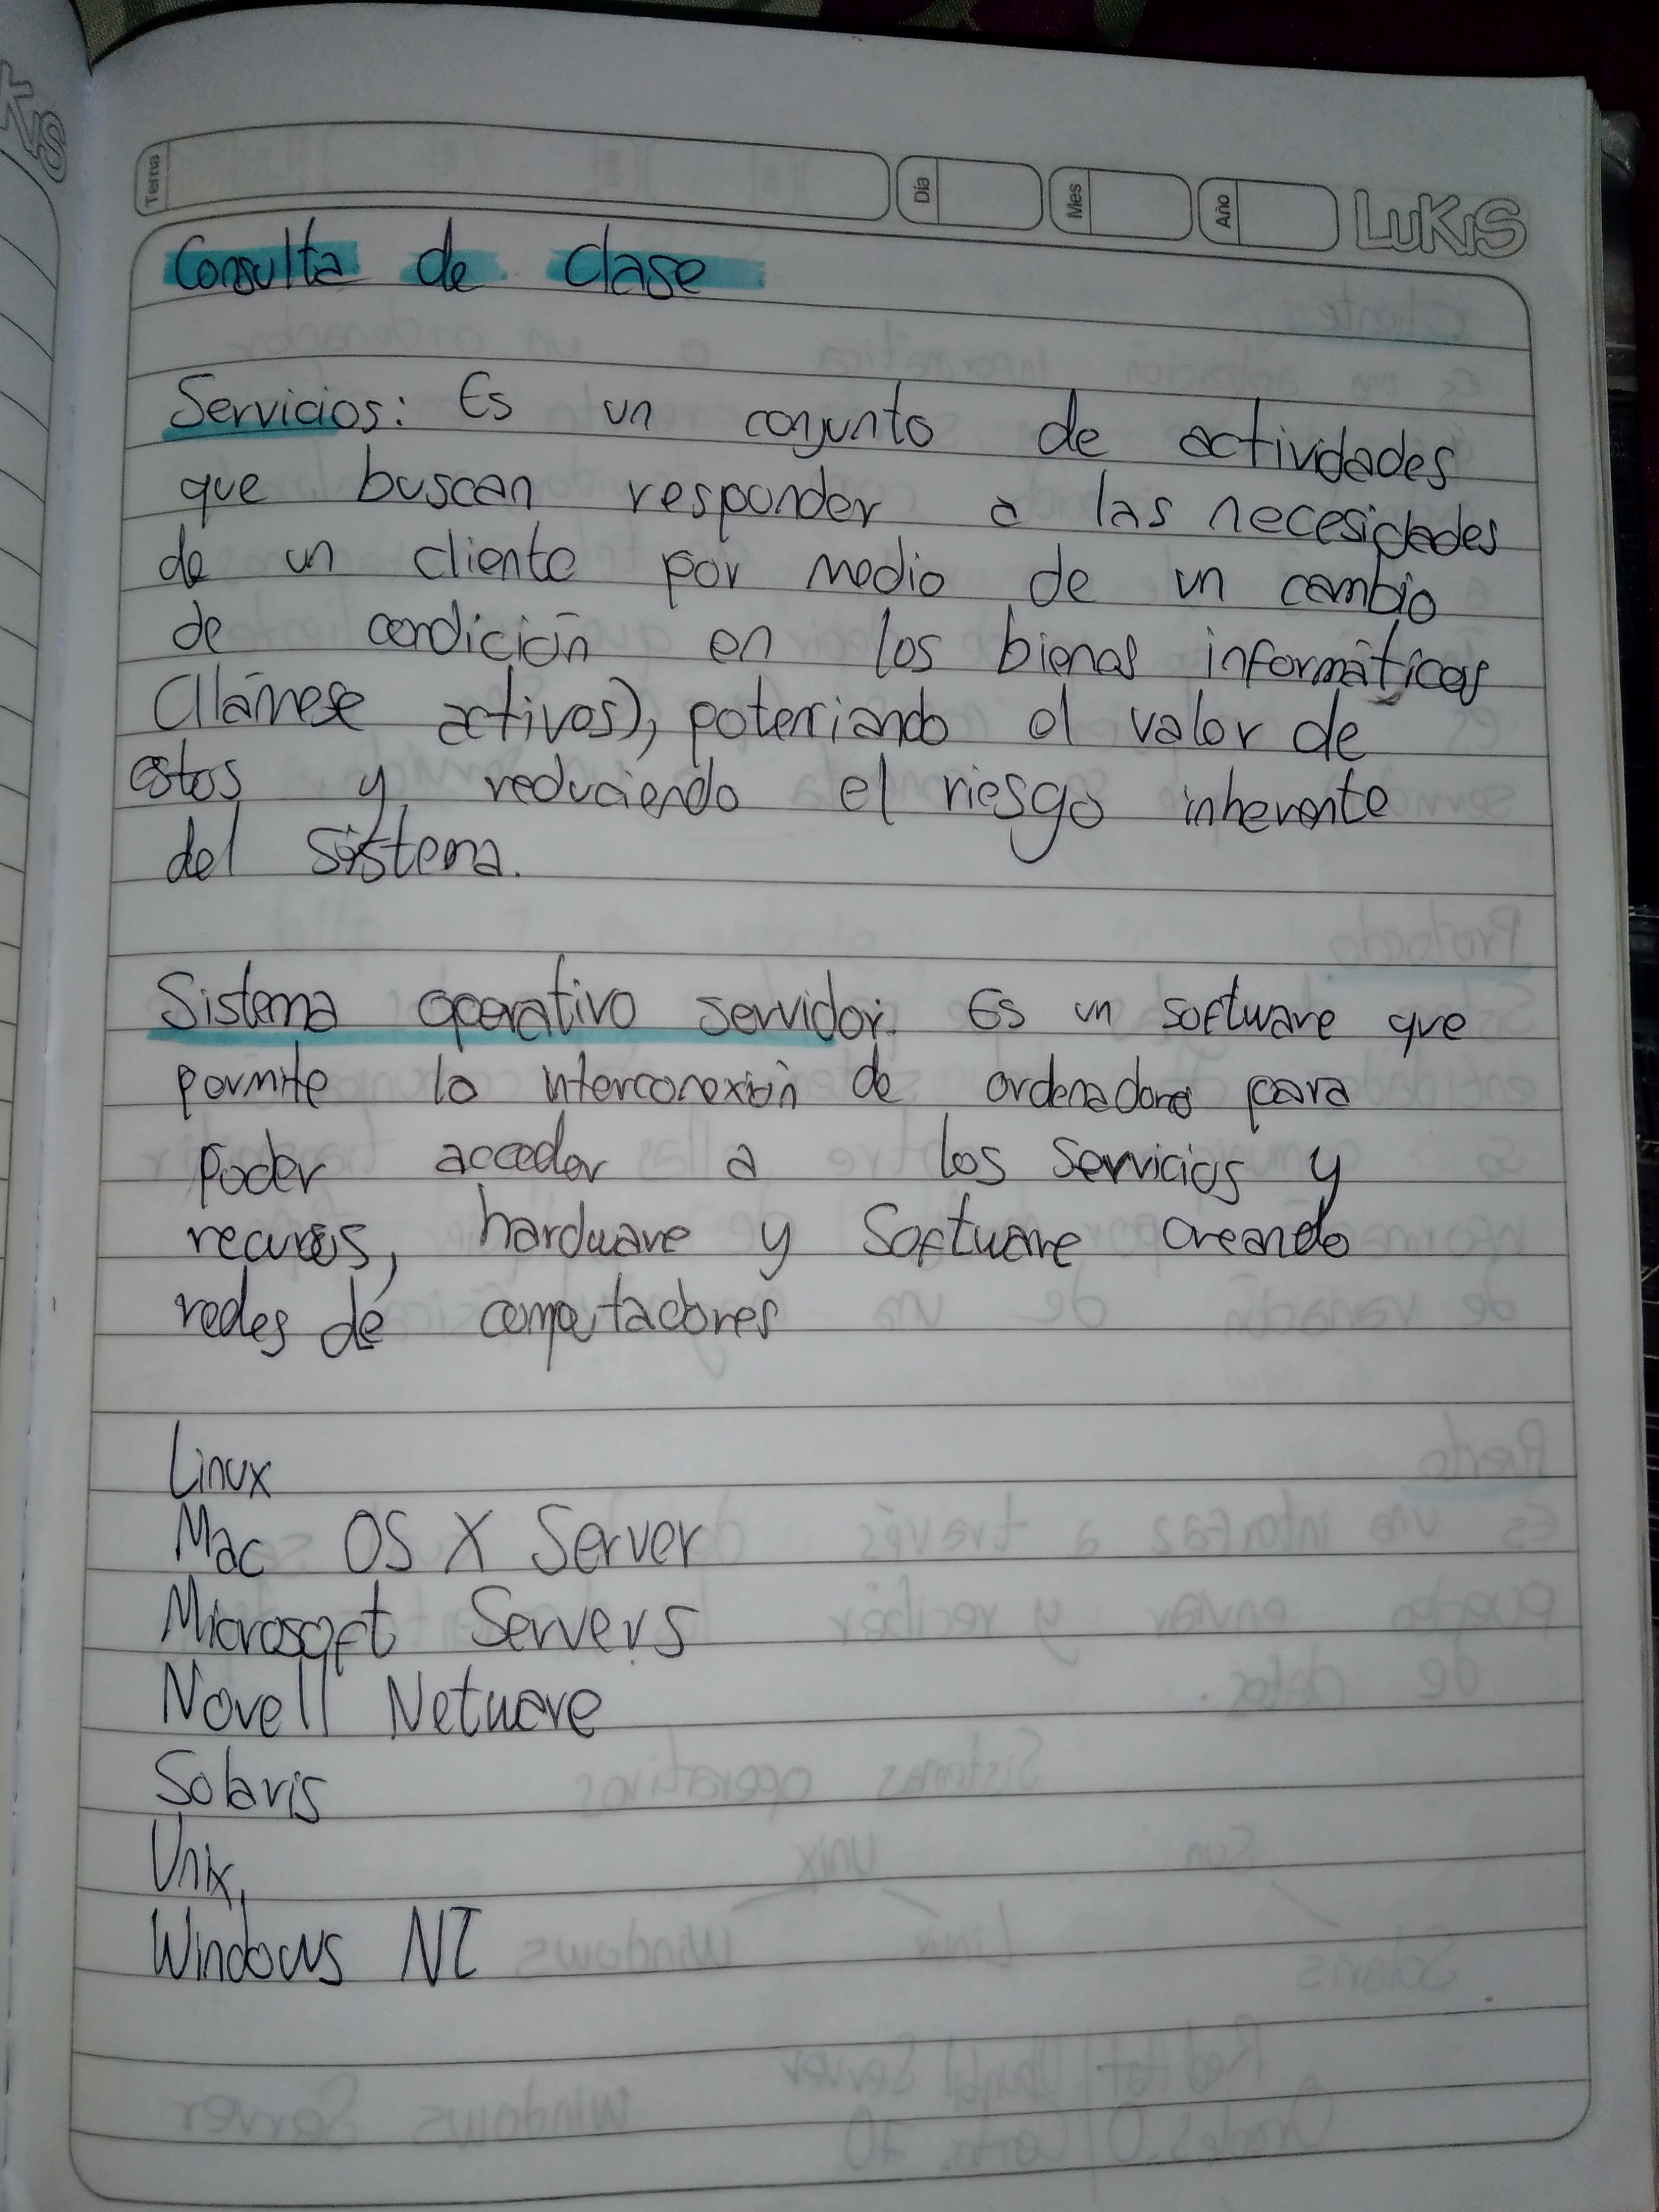 Tema Día Mes Año LUKIS
Consulta de clase
Servicios: Es un conjunto de actividades
que buscan responder a las necesidades
de un cliente por medio de un cambio
de condición en los bienes informáticos
(llámese activos), potenciando el valor de
estos y reduciendo el riesgo inherente
del sistema.
Sistema operativo servidor: Es un software que
permite la interconexión de ordenadores para
Poder acceder a los servicios y
recursos, hardware y Software creando
redes de computadores
Linux
Mac OS X Server
Microsoft Servers
Novell Netware
Solaris
Unix,
Windows NT